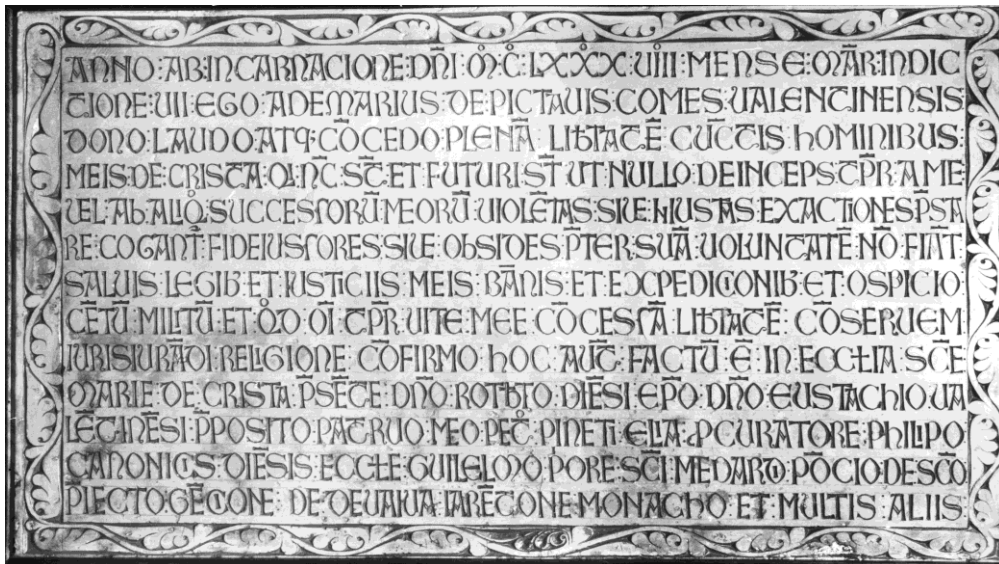 ANNO : AB : INCARNACIONE : DN̄I : M̊ : C̊ : LXXX̊ : VIIII : MENSE : MAR̄ : INDIC
TIONE : VII : EGO : ADEMARIUS : DE : PICTAUIS : COMES : UALENTINENSIS
DONO : LAUDO : ATQ : CŌCEDO : PLENĀ LIB̄TATĒ CŪCTIS hOMINIBUS :
MEIS : DE : CRISTA : QI : N̄C : S̄T : ET FUTURI : S̄T UT NULLO : DEINCEPS : T̄PR : A ME
UEL : AB : ALIQ̊ : SUCCESSORŪ : MEORŪ : UIOLĒTAS : SIUE : NIUSTAS : EXACTIONES : P̄STA
RE : COGANT̄ : FIDEIUSSORES : SIUE : OBSIDES : P̄TER : SUĀ : UOLUNTATĒ : NŌ : FIĀT
SALUIS : LEGIB : ET : IUSTICIIS : MEIS : BĀNIS : ET : EXPEDICIONIB : ET : OSPICIO :
CĒTŪ : MILITŪ : ET : Q̊D OI T̄PR UITE : MEE : CŌCESSĀ LIB̄TATĒ : CŌSERUEM
IURISIURĀDI : RELIGIONE : CŌFIRMO : hOC : AUT̄ : FACTŪ : Ē : IN : ECCLIA : SCE
MARIE : DE : CRISTA : P̄SĒTE : DN̄O : ROTB̄TO : DIĒSI : EP̄O : DN̄O : EUSTACHIO : UA
LĒTINĒSI : P̄POSITO : PATRUO : MEO : PET̊ : PINETI : ELIA : PCURATORE : PHILIPO
CANONICS : DIĒSIS : ECCLE : GUILELMO : PORE : SC̄I : MEDARDI : PŌCIO : DESCŌ
P̄LECTO : GĒTONE : DE : DEUAIUA : IARĒTONE : MONACHO : ET : MULTIS : ALIIS :